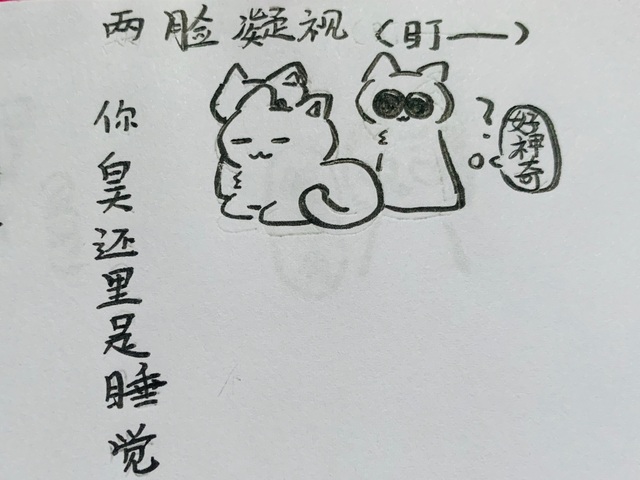 两脸凝视（盯——）
你白天还里是睡觉
?
好神奇